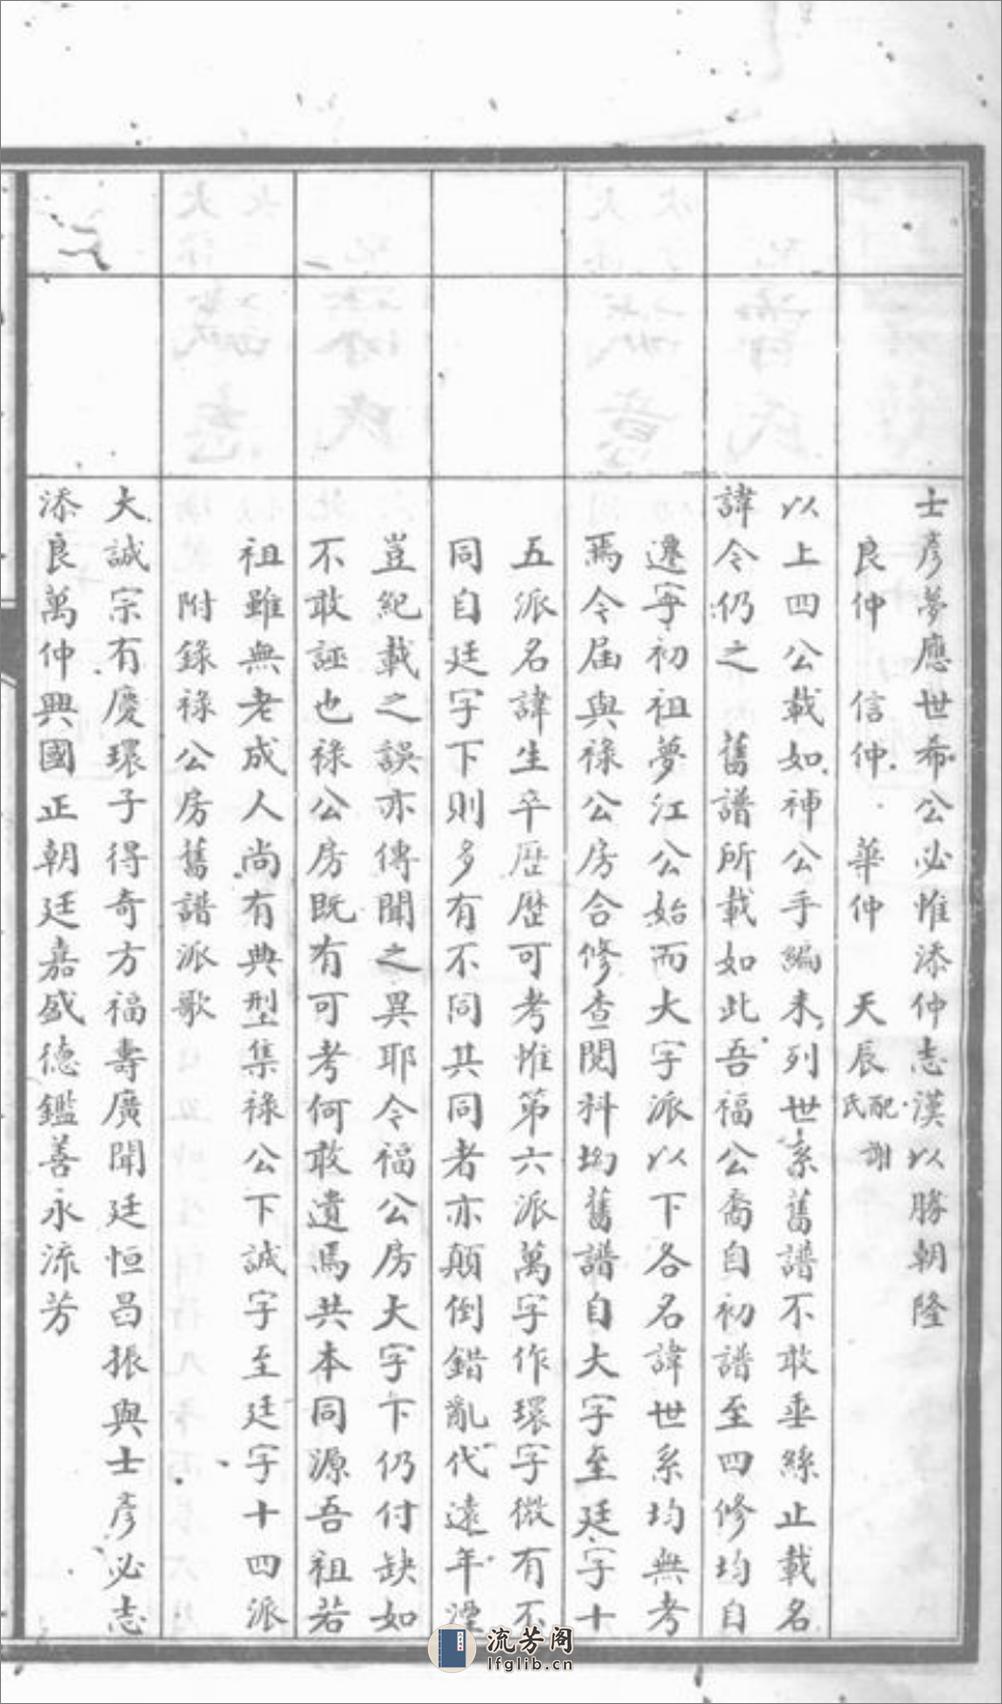 士彥夢應世希公必惟添仲志漢以勝朝隆
良仲 信仲 華仲 天辰配謝氏
以上四公載如神公手編未列世系舊譜不敢垂絲止載名
諱今仍之 舊譜所載如此吾福公喬自初譜至四修均自
遷寧初祖夢江公始而大字派以下各名諱世系均無考
焉今屆與祿公房合修查閱科坳舊譜自大字至廷字十
五派名諱生卒歷歷可考惟第六派萬字作環字微有不
同自廷字下則多有不同其同者亦顛倒錯亂代遠年湮
豈紀載之誤亦傳聞之異耶今福公房大字下仍付缺如
不敢誣也祿公房既有可考何敢遺焉共本同源吾祖若
祖雖無老成人尚有典型集祿公下誠字至廷字十四派
附錄祿公房舊譜派歌
大誠宗有慶環子得奇方福壽廣聞廷恒昌振與士彥必志
添良萬仲興國正朝廷嘉盛德鑑善永流芳
流芳阁
lfglib.cn